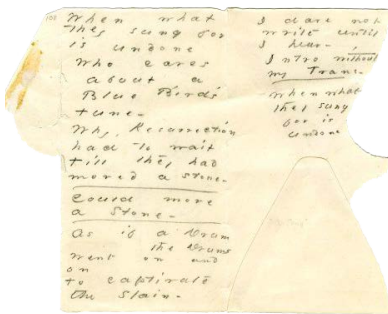 When what
they sung for
is undone
Who cares
about a
Blue Bird's
tune -
Why, Resurrection
had to wait
till they had
moved a stone -
Could move
a stone -
As if a Drum
the Drums
went on and
on
to captivate
the slain -
I dare not
write until
I hear -
Intro without
my Trans -
When what
they sung
for is
undone